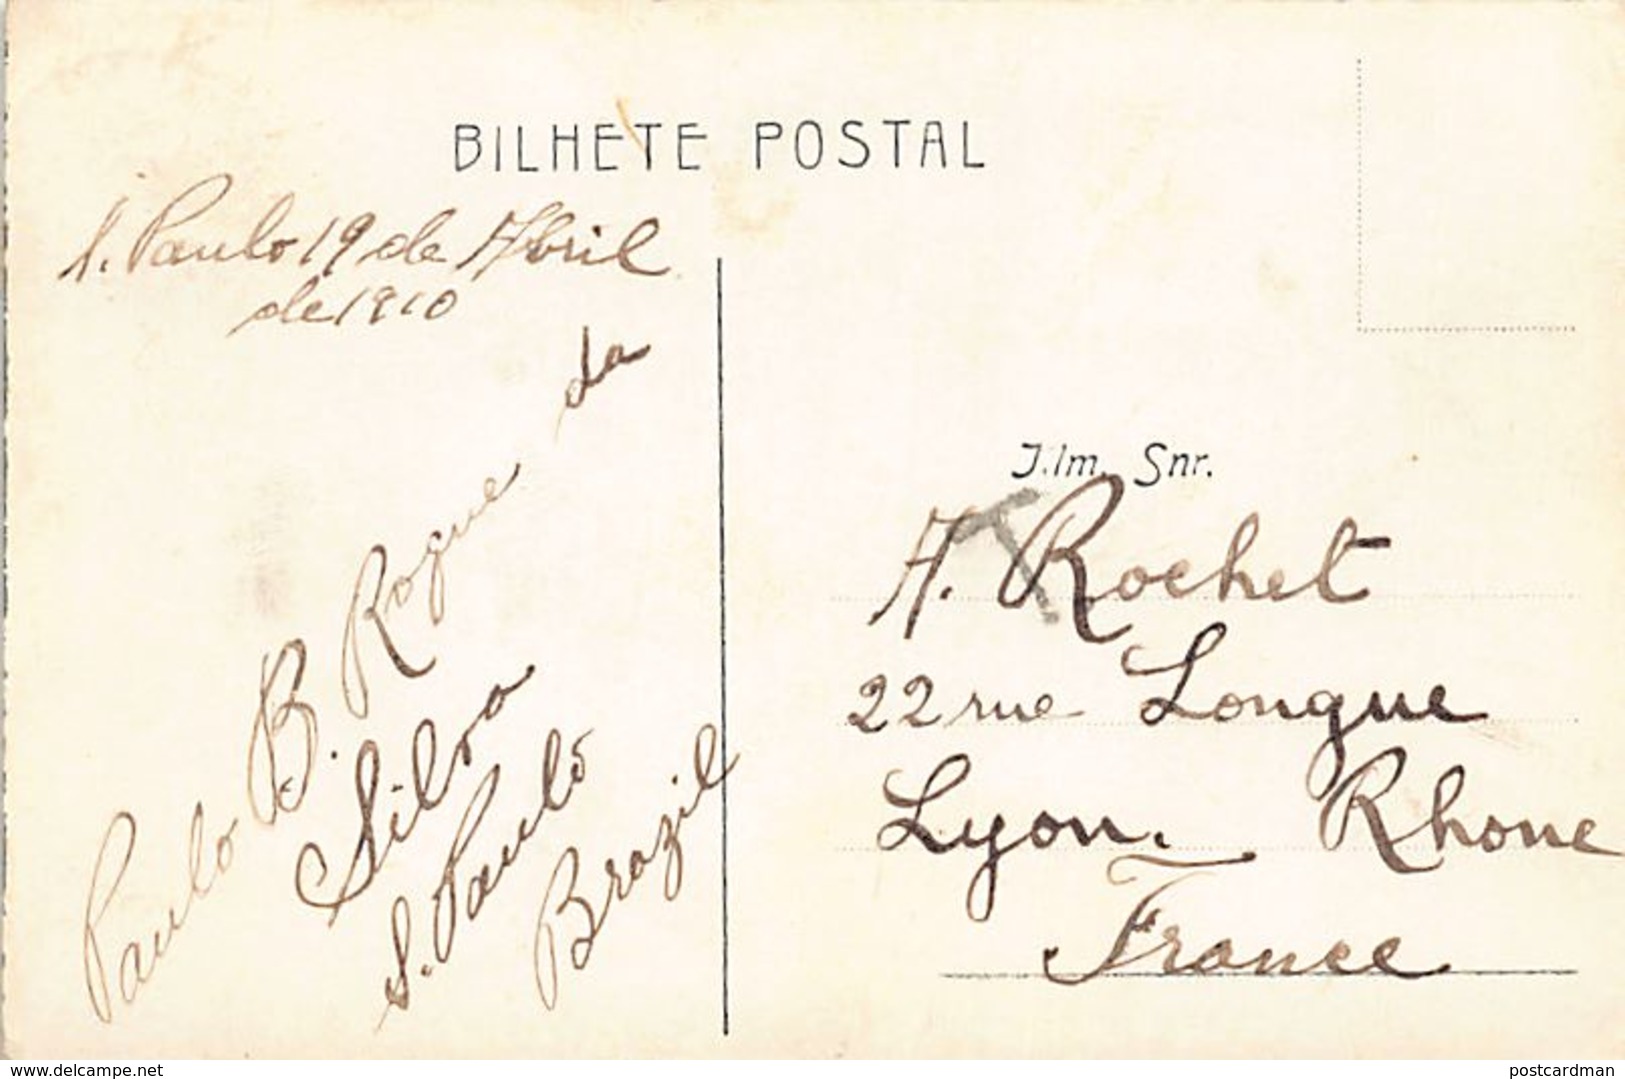 BILHETE POSTAL
S. Paulo 19 de Abril
de 1910
Paulo B. Roque da
Silva
S. Paulo
Brazil
J.lm. Snr.
T
A. Rochet
22 rue Longue
Lyon. Rhone
France
www.delcampe.net
postcardman